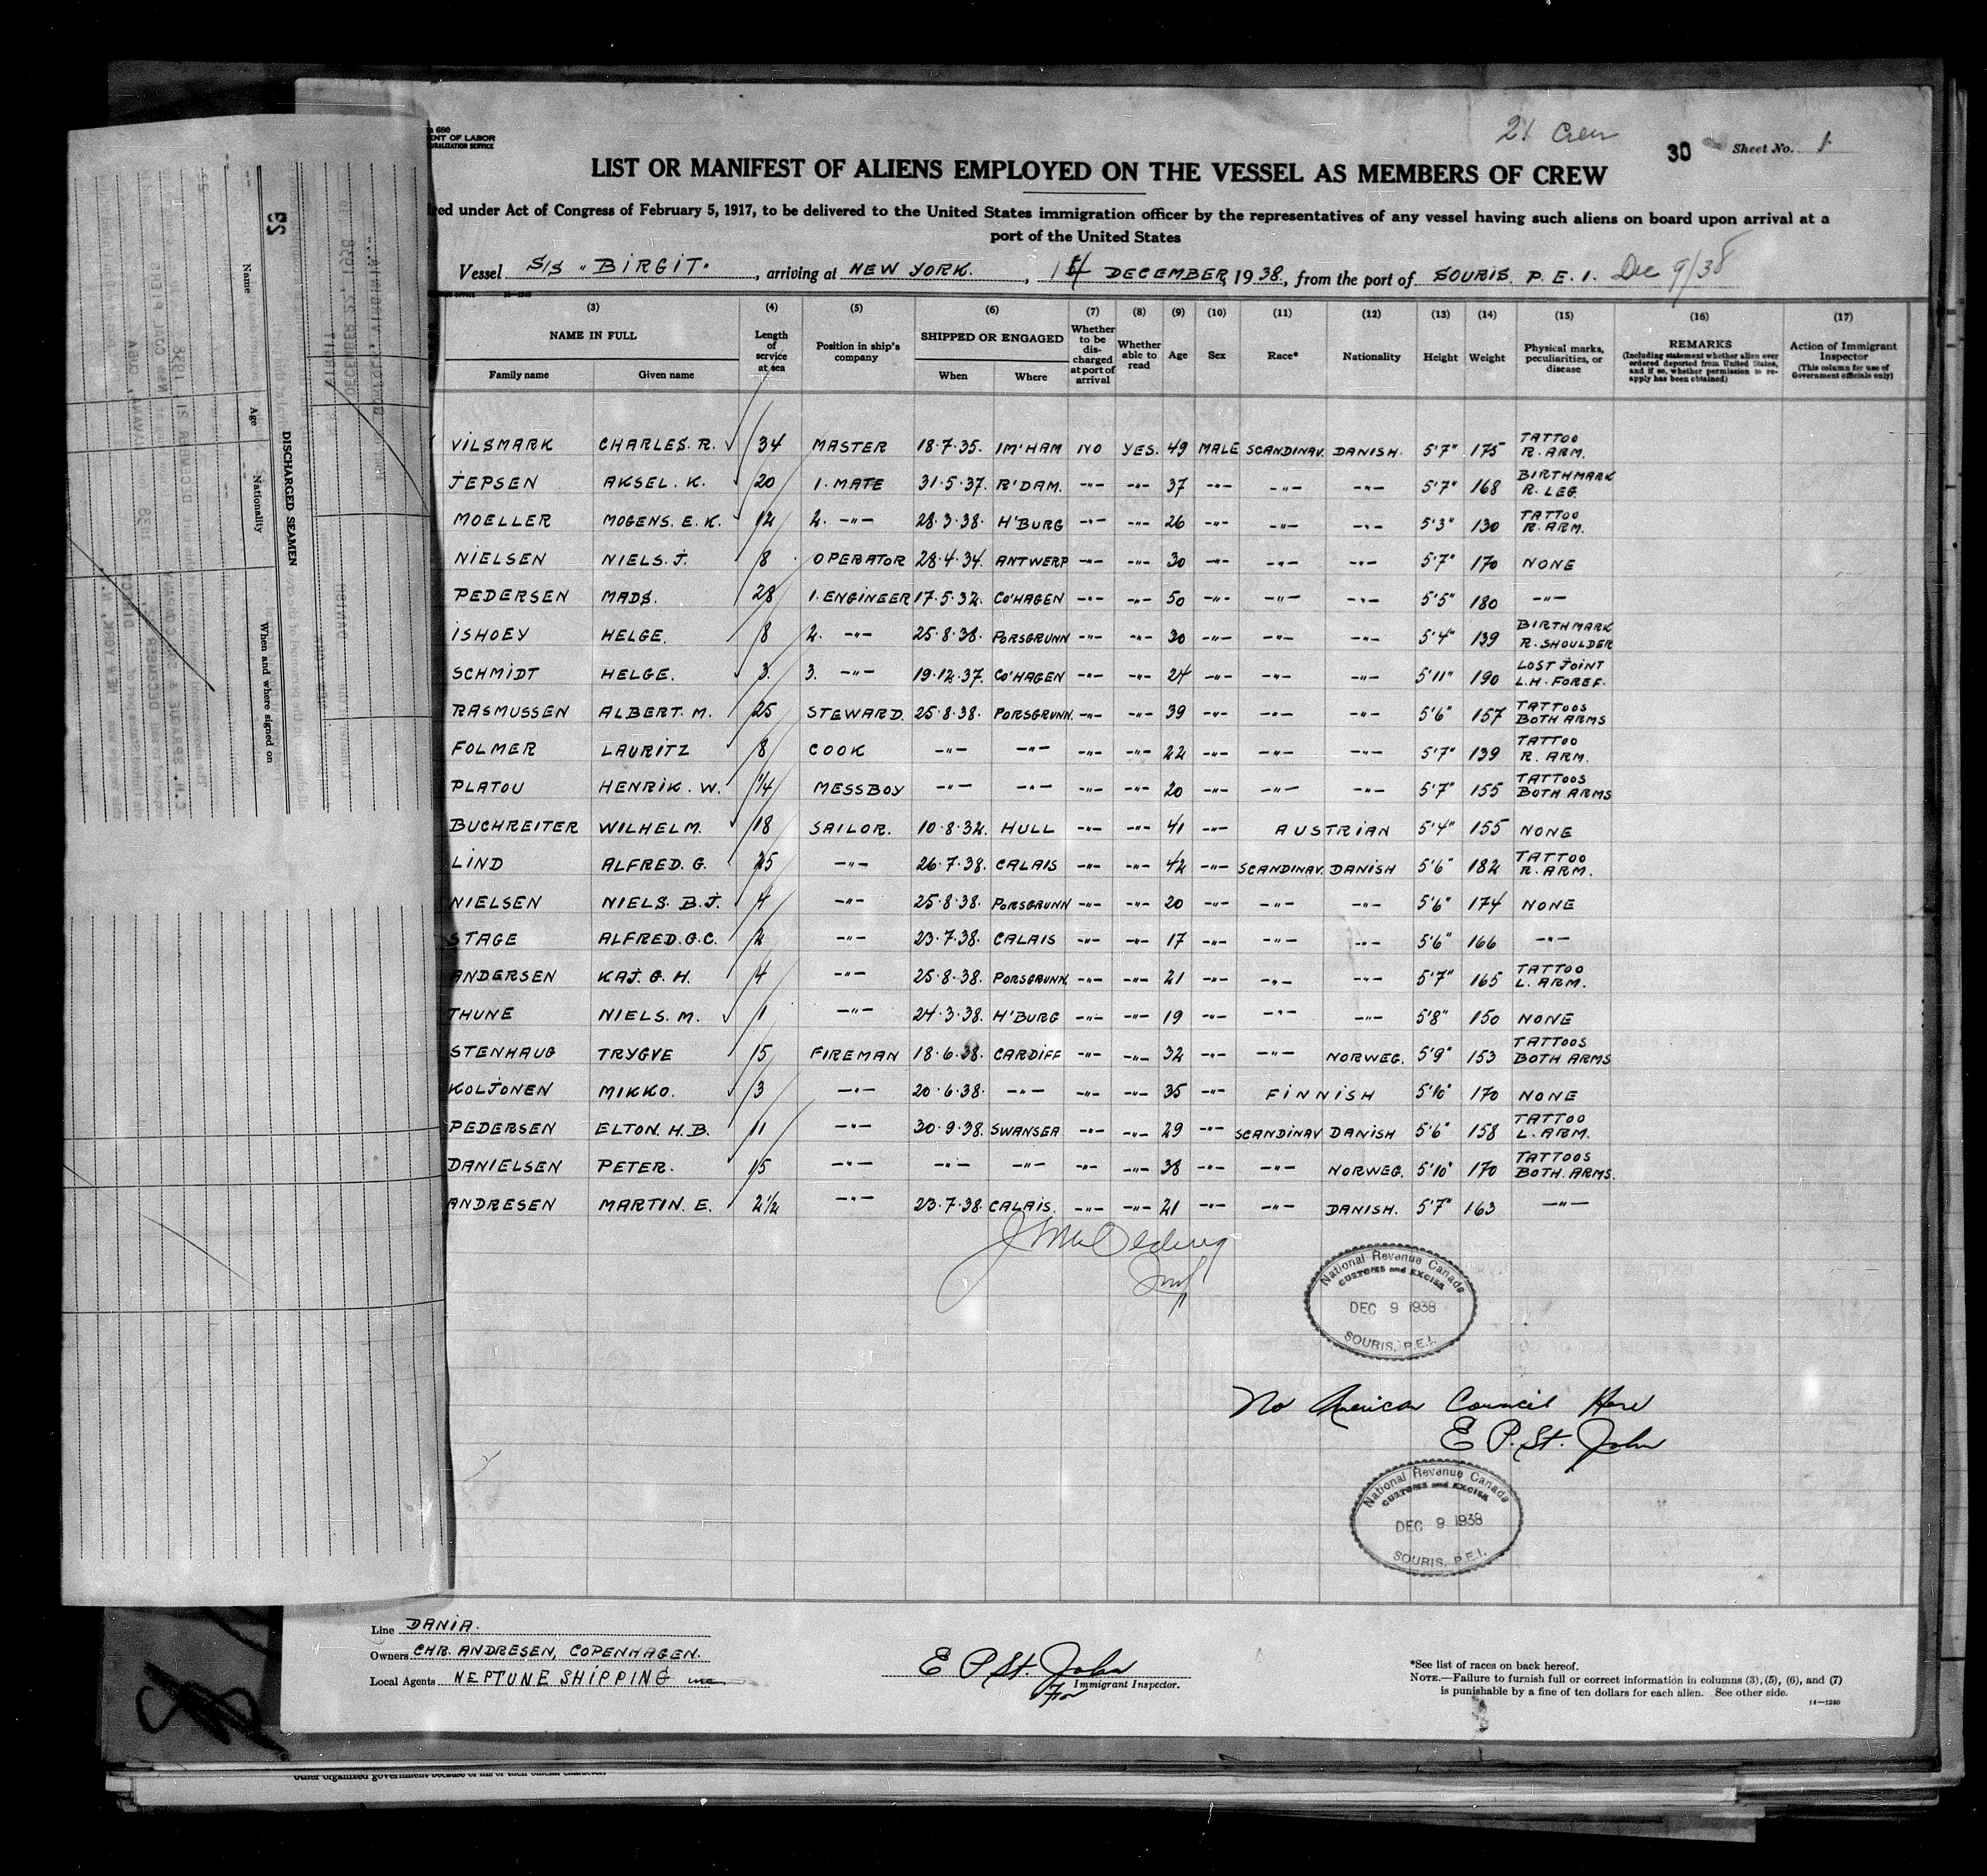 680
ENT OF LABOR
URALIZATION SERVICE
21 Crew
30 Sheet No. 1
LIST OR MANIFEST OF ALIENS EMPLOYED ON THE VESSEL AS MEMBERS OF CREW
red under Act of Congress of February 5, 1917, to be delivered to the United States immigration officer by the representatives of any vessel having such aliens on board upon arrival at a
port of the United States
Vessel S/S "BIRGIT", arriving at NEW YORK., DECEMBER, 1938, from the port of SOURIS P.E.I. Dec 9/38
(3) (4) (5) (6) (7) (8) (9) (10) (11) (12) (13) (14) (15) (16) (17)
NAME IN FULL
Family name Given name
Length of service at sea
Position in ship's company
SHIPPED OR ENGAGED
When Where
Whether to be discharged at port of arrival
Whether able to read
Age Sex Race* Nationality Height Weight
Physical marks, peculiarities, or disease
REMARKS
(Including statement whether alien ever ordered deported from United States, and if so, whether permission to re-apply has been obtained)
Action of Immigrant Inspector
(This column for use of Government officials only)
VILSMARK CHARLES. R. 34 MASTER 18·7·35. IM'HAM NO YES. 49 MALE SCANDINAV. DANISH. 5'7" 175 TATTOO R. ARM.
JEPSEN AKSEL. K. 20 1. MATE 31·5·37. R'DAM. -"- -"- 37 -"- -"- -"- 5'7" 168 BIRTHMARK R. LEG.
MOELLER MOGENS. E. K. 12 2. -"- 28·3·38. H'BURG -"- -"- 26 -"- -"- -"- 5'3" 130 TATTOO R. ARM.
NIELSEN NIELS. J. 8 OPERATOR 28·4·34. ANTWERP -"- -"- 30 -"- -"- -"- 5'7" 170 NONE
PEDERSEN MADS. 28 1. ENGINEER 17·5·32. CO'HAGEN -"- -"- 50 -"- -"- -"- 5'5" 180 -"-
ISHOEY HELGE. 8 2. -"- 25·8·38. PORSGRUNN -"- -"- 30 -"- -"- -"- 5'4" 139 BIRTHMARK R. SHOULDER
SCHMIDT HELGE. 3. 3. -"- 19·12·37. CO'HAGEN -"- -"- 24 -"- -"- -"- 5'11" 190 LOST JOINT L.H. FOREF.
RASMUSSEN ALBERT. M. 25 STEWARD. 25·8·38. PORSGRUNN. -"- -"- 39 -"- -"- -"- 5'6" 157 TATTOOS BOTH ARMS
FOLMER LAURITZ 8 COOK -"- -"- -"- -"- 22 -"- -"- -"- 5'7" 139 TATTOO R. ARM.
PLATOU HENRIK. W. 1/4 MESSBOY -"- -"- -"- -"- 20 -"- -"- -"- 5'7" 155 TATTOOS BOTH ARMS
BUCHREITER WILHELM. 18 SAILOR. 10·8·32. HULL -"- -"- 41 -"- AUSTRIAN 5'4" 155 NONE
LIND ALFRED. G. 25 -"- 26·7·38. CALAIS -"- -"- 42 -"- SCANDINAV. DANISH 5'6" 182 TATTOO R. ARM.
NIELSEN NIELS. B.J. 4 -"- 25·8·38. PORSGRUNN -"- -"- 20 -"- -"- -"- 5'6" 174 NONE
STAGE ALFRED.G.C. 2 -"- 23·7·38. CALAIS -"- -"- 17 -"- -"- -"- 5'6" 166 -"-
ANDERSEN KAJ. G. H. 4 -"- 25·8·38. PORSGRUNN. -"- -"- 21 -"- -"- -"- 5'7" 165 TATTOO L. ARM.
THUNE NIELS. M. 1 -"- 24·3·38. H'BURG -"- -"- 19 -"- -"- -"- 5'8" 150 NONE
STENHAUG TRYGVE 15 FIREMAN 18·6·38. CARDIFF -"- -"- 32 -"- -"- NORWEG. 5'9" 153 TATTOOS BOTH ARMS
KOLJONEN MIKKO. 3 -"- 20·6·38. -"- -"- -"- 35 -"- FINNISH 5'10" 170 NONE
PEDERSEN ELTON. H.B. 11 -"- 30·9·38. SWANSEA -"- -"- 29 -"- SCANDINAV DANISH 5'6" 158 TATTOO L. ARM.
DANIELSEN PETER. 15 -"- -"- -"- -"- -"- 38 -"- -"- NORWEG. 5'10" 170 TATTOOS BOTH. ARMS.
ANDRESEN MARTIN. E. 2 1/2 -"- 23·7·38. CALAIS. -"- -"- 21 -"- -"- DANISH. 5'7" 163 -"-
National Revenue Canada
CUSTOMS and EXCISE
DEC 9 1938
SOURIS, P.E.I.
No American Council Here
E P. St. John
National Revenue Canada
CUSTOMS and EXCISE
DEC 9 1938
SOURIS, P.E.I.
Line DANIA.
Owners CHR. ANDRESEN, COPENHAGEN.
Local Agents NEPTUNE SHIPPING inc
E P St. John
For Immigrant Inspector.
*See list of races on back hereof.
NOTE.—Failure to furnish full or correct information in columns (3), (5), (6), and (7)
is punishable by a fine of ten dollars for each alien. See other side.
14—1240
23
DISCHARGED SEAMEN
Name Age Nationality When and where signed on
other organized government because of his or their official character.